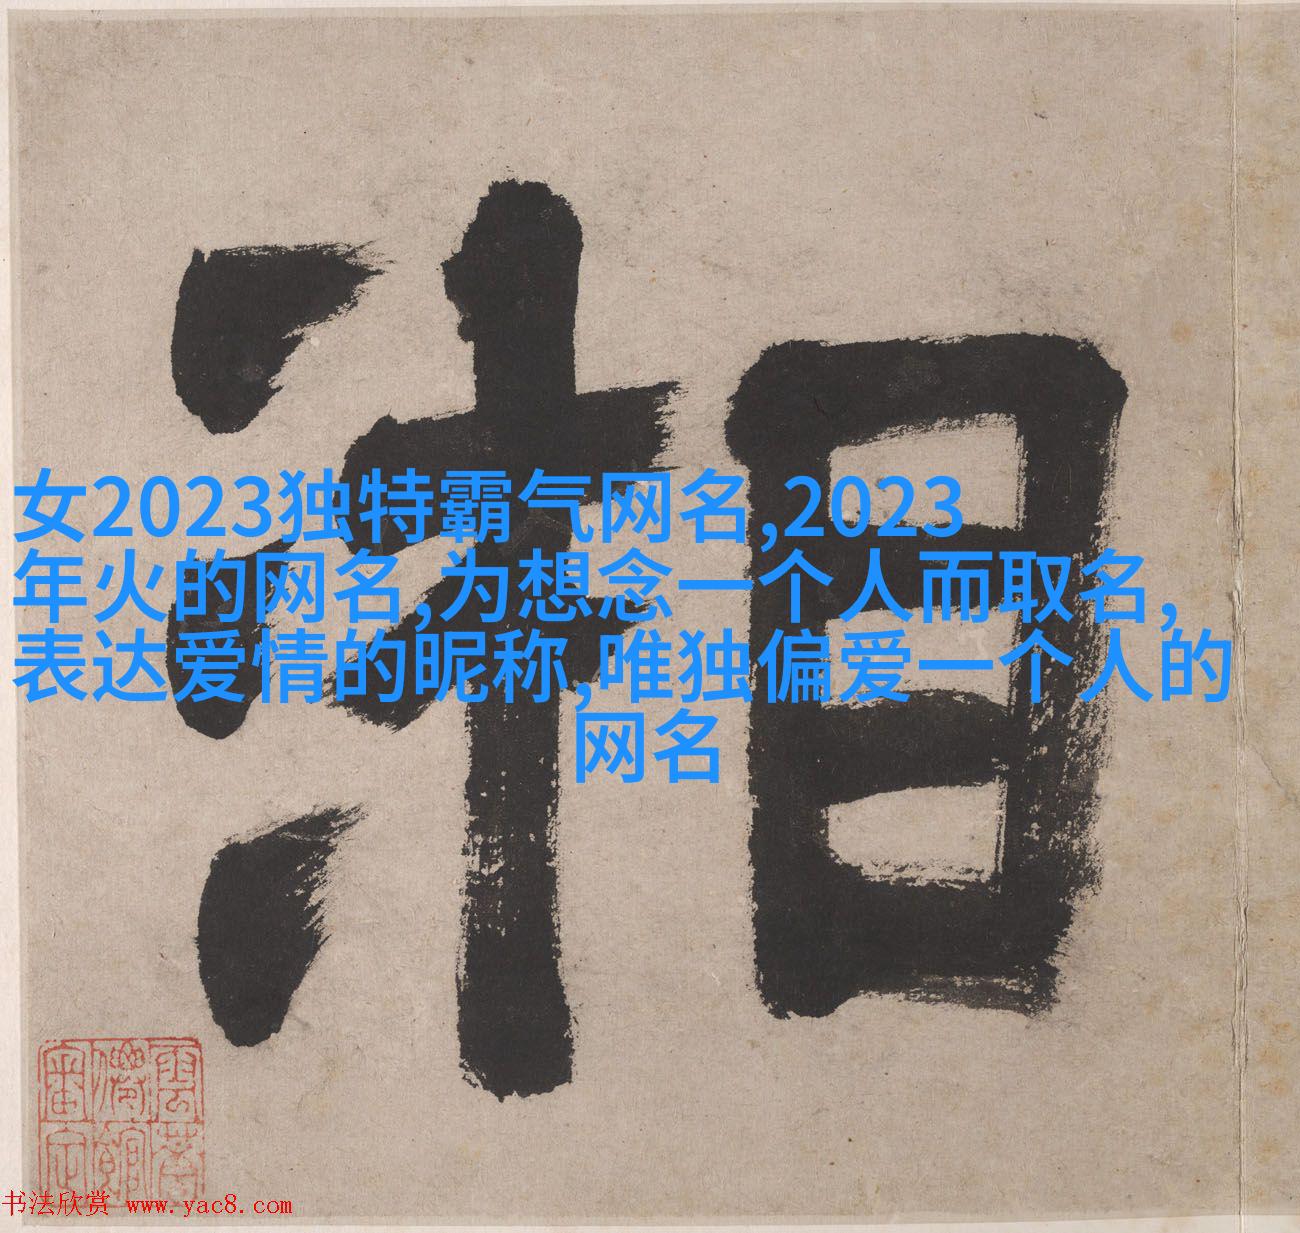 湘
女2023独特霸气网名,2023
年火的网名,为想念一个人而取名,
表达爱情的昵称,唯独偏爱一个人的
网名
书法欣赏 www.yac8.com